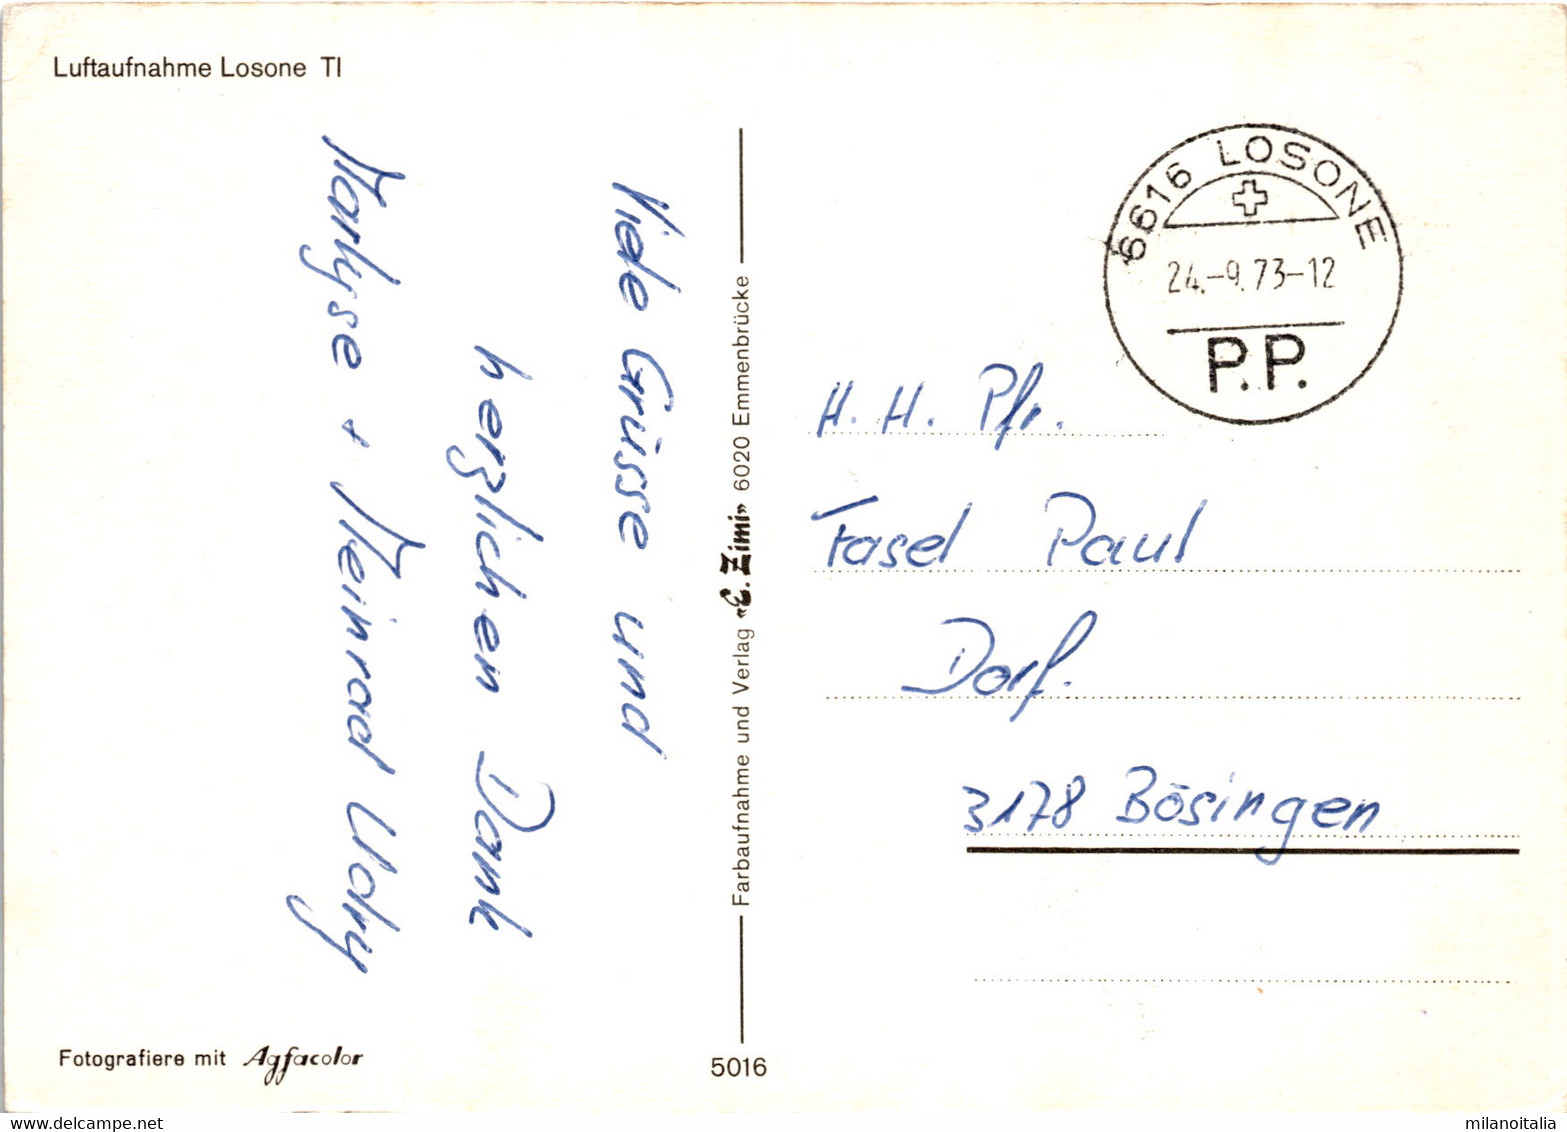 Luftaufnahme Losone TI
Viele Grüsse und
herzlichen Dank
Marlyse + Meinrad Udry
Fotografiere mit Agfacolor
Farbaufnahme und Verlag «E. Zimi» 6020 Emmenbrücke
5016
6616 LOSONE
24.-9.73-12
P.P.
H. H. Pfr.
Fasel Paul
Dorf.
3178 Bösingen
delcampe.net
milanoitalia